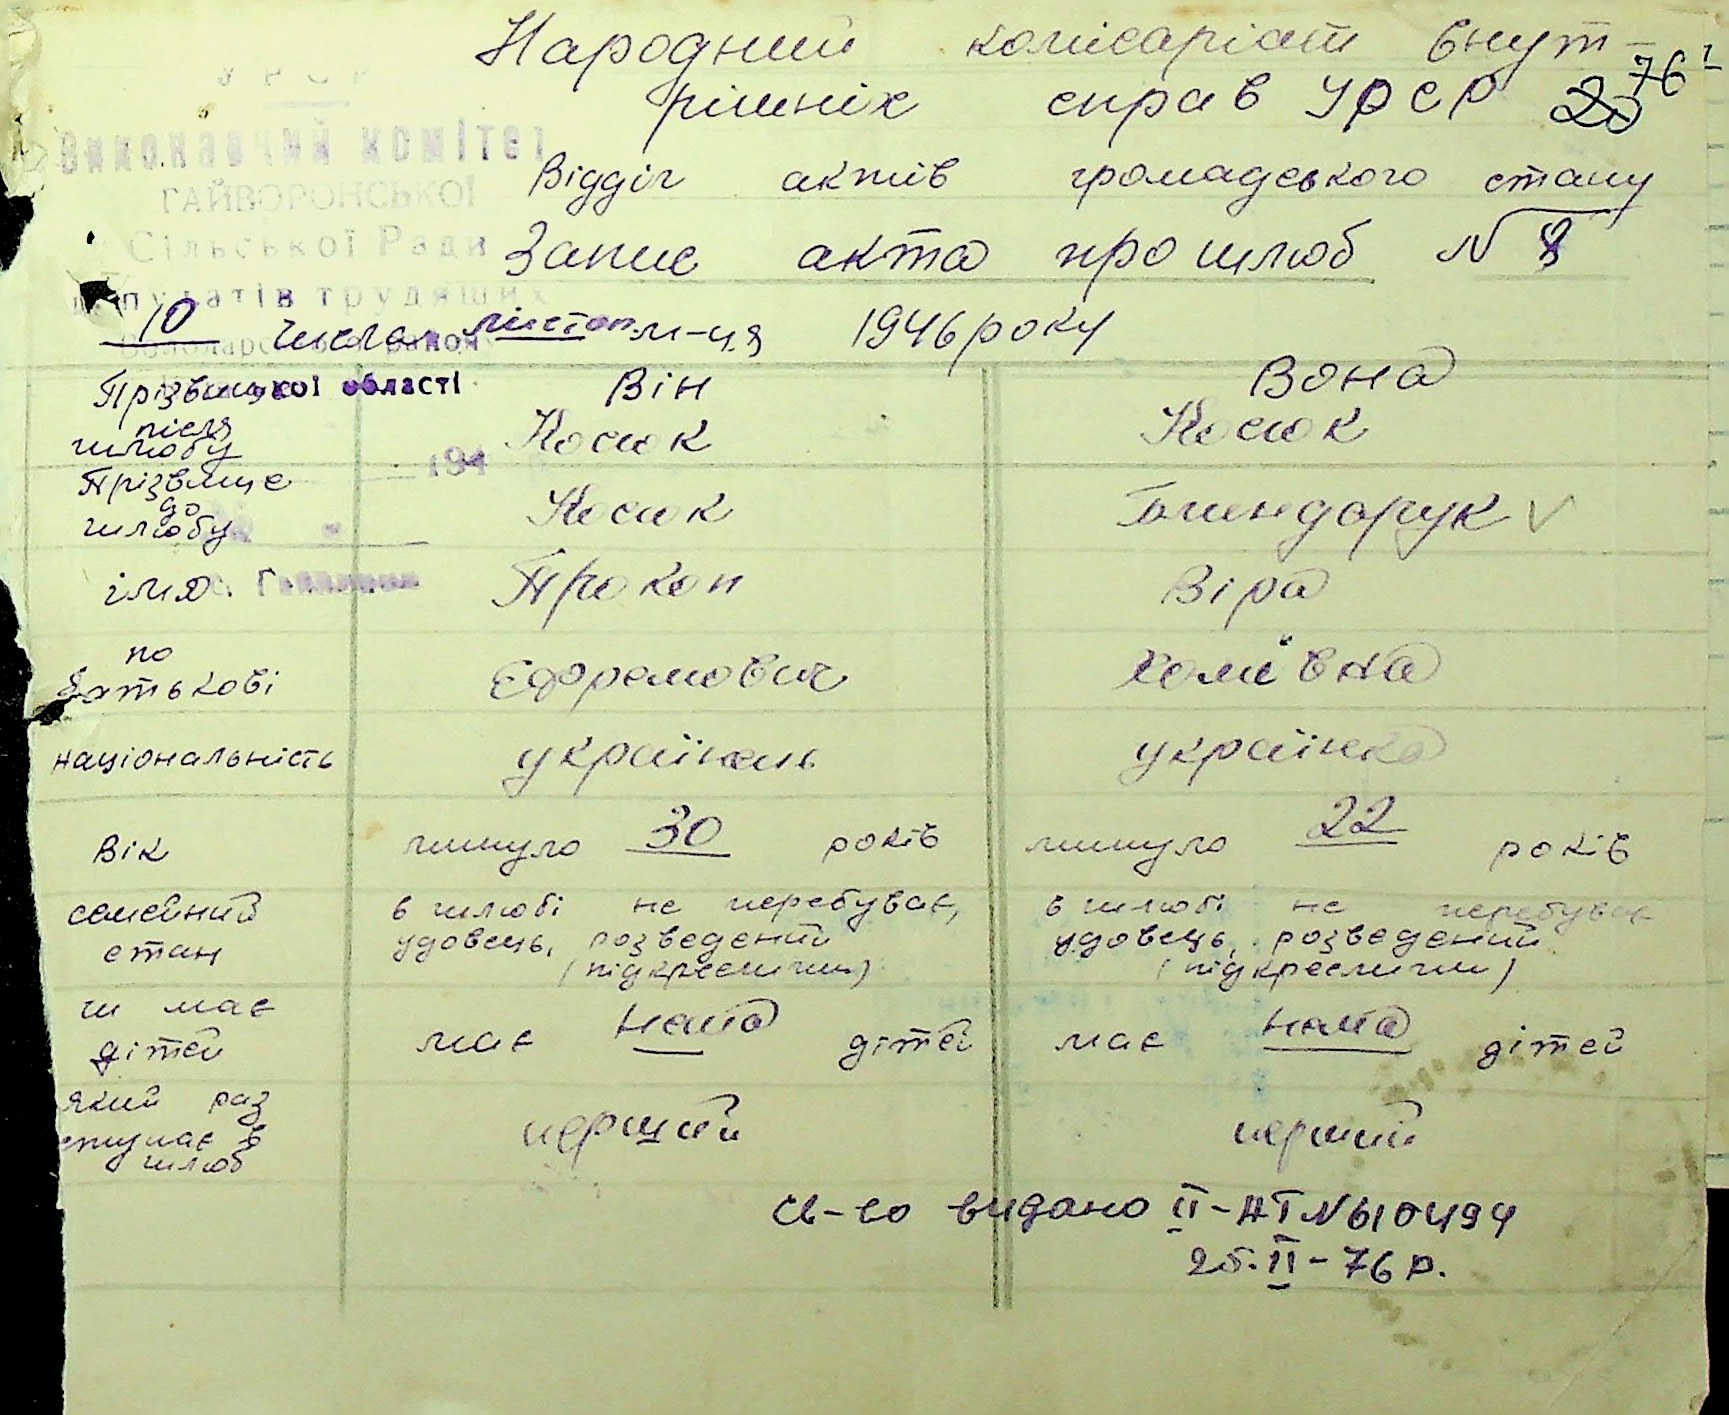 Народний комісаріат внут-
рішніх справ УРСР
76
Відділ актів громадського стану
Запис акта про шлюб N 8
УРСР
Виконавчий комітет
ГАЙВОРОНСЬКОЇ
Сільської Ради
депутатів трудящих
області
194
10 числа листоп. м-ця 1946 року
Він Вона
Прізвище після шлюбу Косюк Косюк
Прізвище до шлюбу Косюк
імя Прокоп Віра
по батькові Єфремович Хомівна
національність українець українка
Вік минуло 30 років минуло 22 років
семейний стан в шлюбі не перебував, в шлюбі не перебував
удовець, розведений удовець, розведений
(підкреслити) (підкреслити)
чи має дітей має нема дітей має нема дітей
який раз ступає в шлюб перший перший
св-во видано II-НТ N 610494
25.II-76 р.